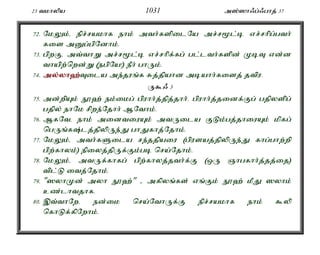 23 வமாலிய 1031 அஸ்ஸாஃப்ஃபாத் 37
72. மேலும், நிச்சயமாக நாம் அவர்களிடையே அச்சமூட்டி எச்சரிப்பவர்
களை அனுப்பினோம்.
73. பிறகு, அவ்வாறு அச்சமூட்டி எச்சரிக்கப் பட்டவர்களின் முடிவு என்ன
வாயிற்றென்று (நபியே!) நீர் பாரும்.
74. அல்லாஹ்வுடைய அந்தரங்க சுத்தியான அடியார்களைத் தவிர.
ருகூஃ 3
75. அன்றியும் நூஹ் நம்மைப் பிரார்த்தித்தார். பிரார்த்தனைக்குப் பதிலளிப்
பதில் நாமே சிறந்தோர் ஆவோம்.
76. ஆகவே, நாம் அனைவரையும் அவருடைய குடும்பத்தாரையும் மிகப்
பெருங்கஷ்டத்திலிருந்து பாதுகாத்தோம்.
77. மேலும், அவர்களுடைய சந்ததியரை (பிரளயத்திலிருந்து காப்பாற்றி
பிற்காலம்) நிலைத்திருக்கும்படி செய்தோம்.
78. மேலும், அவருக்காகப் பிற்காலத்தவர்க்கு (ஒரு ஞாபகார்த்தத்தை)
விட்டு வைத்தோம்.
79. "ஸலாமுன் அலா நூஹ்" , அகிலங்கள் எங்கும் நூஹ் மீது ஸலாம்
உண்டாவதாக.
80. இவ்வாறே, நன்மை செய்வோருக்கு நிச்சயமாக நாம் கூலி
கொடுக்கிறோம்.